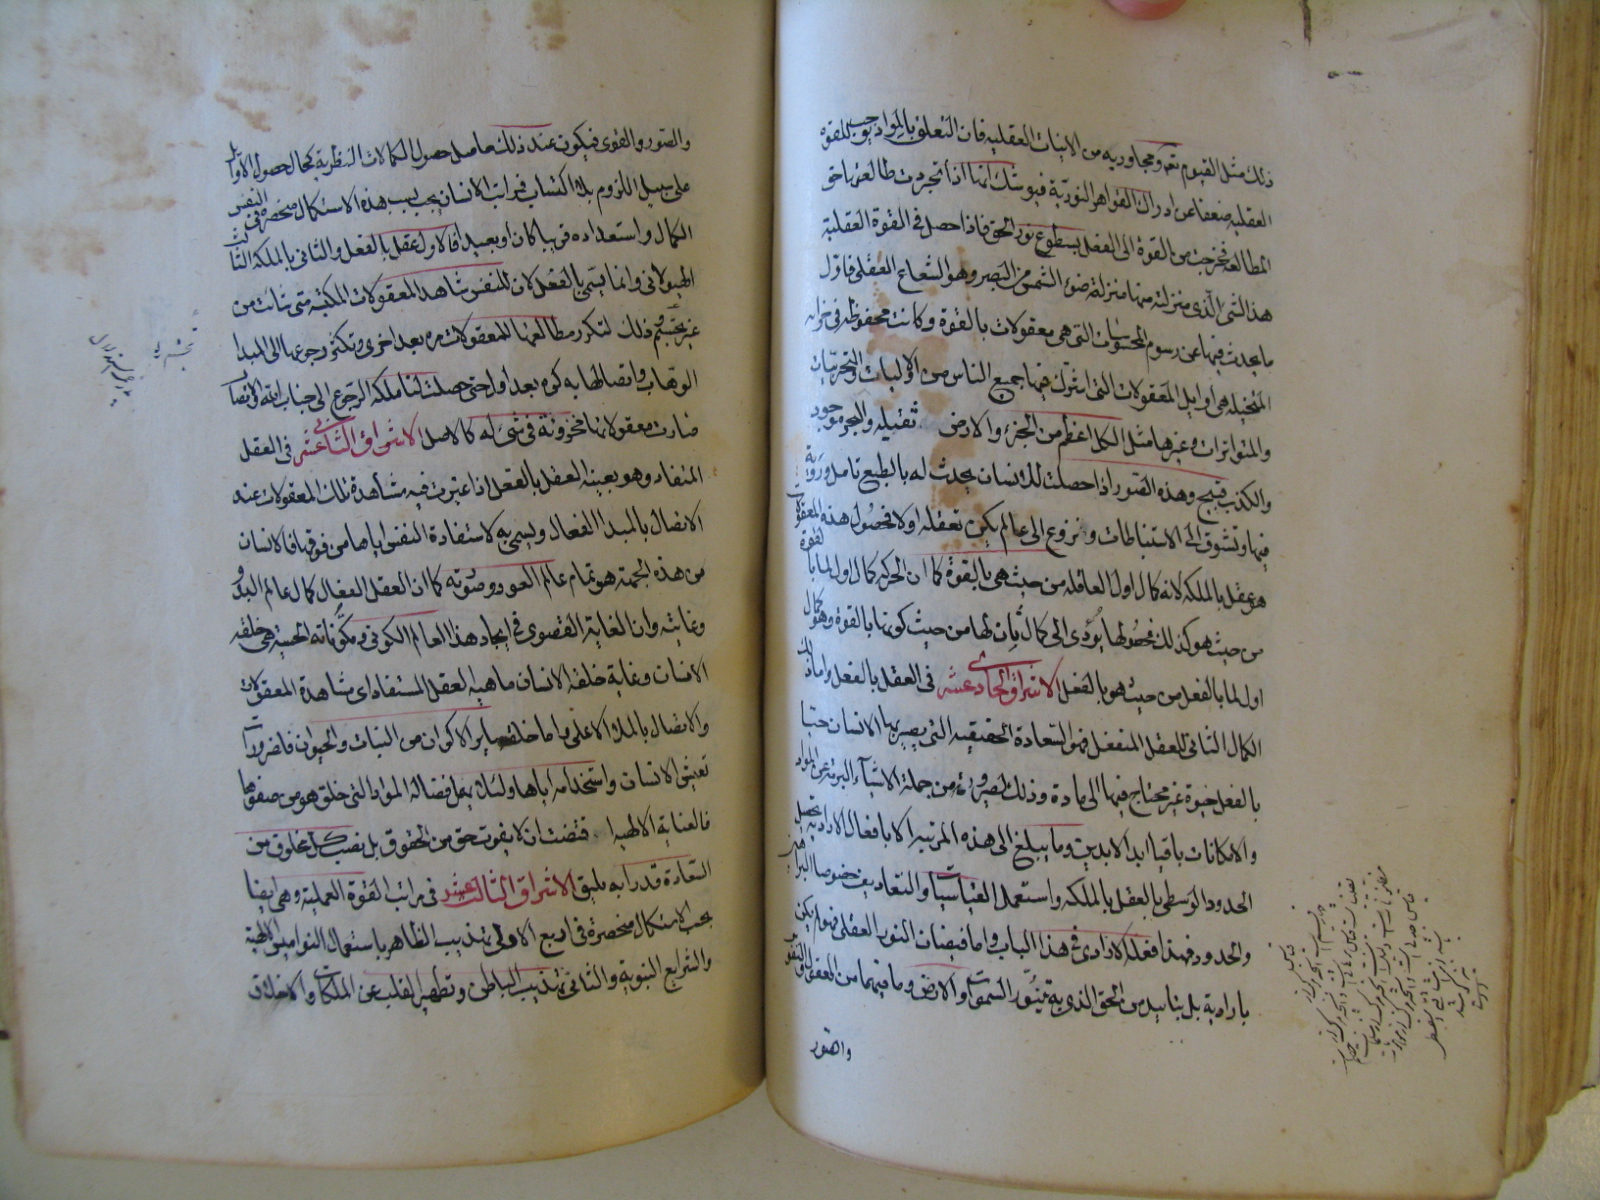 ذلك مثل القيوم تعالى ومجاوريه من الانيات العقليه فان التعلق بالمواد يوجب للقوه
العقليه ضعفا عن ادراك القواهر النوريّة فيوشك انها اذا تجردت طالعتها حق
المطالعه فخرجت من القوة الى الفعل بسطوع نور الحق فاذا حصل في القوة العقلية
هذا الشئ الّذى منزلته منها منزلة ضوء الشمس من البصر وهو الشعاع العقلى فاول
ما يحدث فيها عن رسوم المحسوسات التى هى معقولات بالقوة وكانت محفوظه فى خزانه
المتخيله هى اوايل المعقولات التى اشترك فيها جميع الناس من الاوليات والتجربيات
والمتواترات وغيرها مثل الكل اعظم من الجزء والارض ثقيله والبحر موجود
والكذب قبيح وهذه الصور اذا حصلت للانسان يحدث له بالطبع تامل ورويّة
فيها وتشوق الى الاستنباطات ونزوع الى ما لم يكن تعقله اولا فحصول هذه المعقولات
هو عقل بالملكه لانه كمال اول للعاقله من حيث هى بالقوة كما ان الحركه كمال اول لما بالقوة
من حيث هو كذلك فحصولها يؤدى الى كمال ثان لها من حيث كونها بالقوة وهو كمال
اول لما بالفعل من حيث هو بالفعل الاشراق الحادى عشر فى العقل بالفعل واما ذلك
الكمال الثانى للعقل المنفعل فهو السعادة الحقيقيه التى يصير بها الانسان حيّا
بالفعل حيوة غير محتاج فيها الى مادة وذلك لصيرورته من جملة الاشياء البريّة عن المواد
والامكانات باقيا ابد الابدين وما يبلغ الى هذه المرتبه الا بافعال ارادية تحصيل
الحدود الوسطى بالعقل بالملكه واستعمل القياسيات والتعاريف خصوصا البراهين
والحدود فهذا فعله الارادى فى هذا الباب واما فيضان النور العقلى فهو لم يكن
بارادية بل بتاييد من الحق الذى به يتنوّر السموات والارض وما فيهما من العقول والنفوس
والصور
والصور والقوى فيكون عند ذلك حاصل حصول الكمالات النظرية كحال حصول الاوايل
على سبيل اللزوم بلا اكتساب فمراتب الانسان بحسب هذه الاستكمال منحصرة فى نفس
الكمال واستعداده قريبا كان او بعيدا فالاول عقل بالفعل والثانى بالملكه الثالث
الهيولانى وانما يسمى بالفعل لان للنفس شاهد المعقولات المكتسبه متى شاءت من
غير تجشّم وذلك لتكرر مطالعتها للمعقولات مره بعد اخرى وتكثر رجوعها الى المبدا
الوهاب واتصالها به كره بعد اولى حتى حصلت لها ملكة الرجوع الى جناب الله والاتصال
صارت معقولاتها مخزونة فى شئ له كالاصل الاشراق الثانى عشر فى العقل
المستفاد وهو بعينه العقل بالفعل اذا اعتبرت فيه مشاهدة تلك المعقولات عند
الاتصال بالمبدا الفعال ويسمى به لاستفادة النفس اياها من فوقها فالانسان
من هذه الجهة هو تمام عالم العود وصورته كما ان العقل الفعال كمال عالم البدو
وغايته وان الغاية القصوى فى ايجاد هذا العالم الكونى ومكوّناته الحسية هى خلقه
الانسان وغاية خلقه الانسان ماهية العقل المستفاد اى مشاهدة المعقولات
والاتصال بالملاء الاعلى واما خلقه ساير الاكوان من النبات والحيوان فلضرورات
تعيش الانسان واستخدامه اياها ولئلا يهمل فضالة المواد التى خلق هو من صفوها
فالعناية الالهية اقتضت ان لا يفوت حق من الحقوق بل نصيب كل مخلوق من
السعادة قدرا به يليق الاشراق الثالث عشر فى مراتب القوة العملية وهى ايضا
بحسب الاستكمال منحصرة فى اربع الاولى تهذيب الظاهر باستعمال النواميس الالهية
والشرايع النبوية والثانى تهذيب الباطن وتطهير القلب عن الملكات والاخلاق